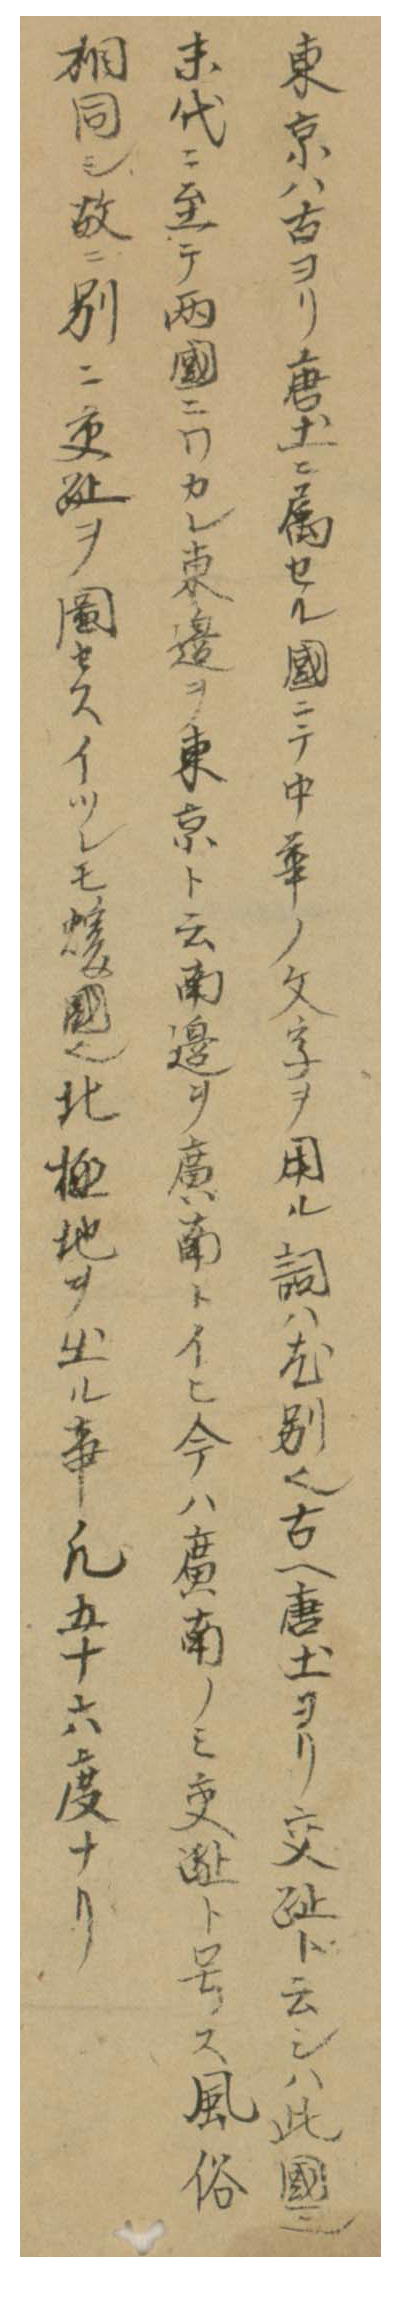 東京ハ古ヨリ唐土ニ属セル國ニテ中華ノ文字ヲ用ル詞ハ尤別也古ヘ唐土ヨリ交趾ト云シハ此國ニ
末代ニ至テ两國ニワカレ東邉ヲ東京ト云南邉ヲ廣南トイヒ今ハ廣南ノミ交趾ト号ス風俗
相同シ故ニ別ニ交趾ヲ圖セスイツレモ煖國也北極地ヲ出ル事凡五十六度ナリ